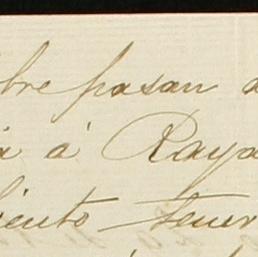 bre pasan a
a á Raya
iento tener